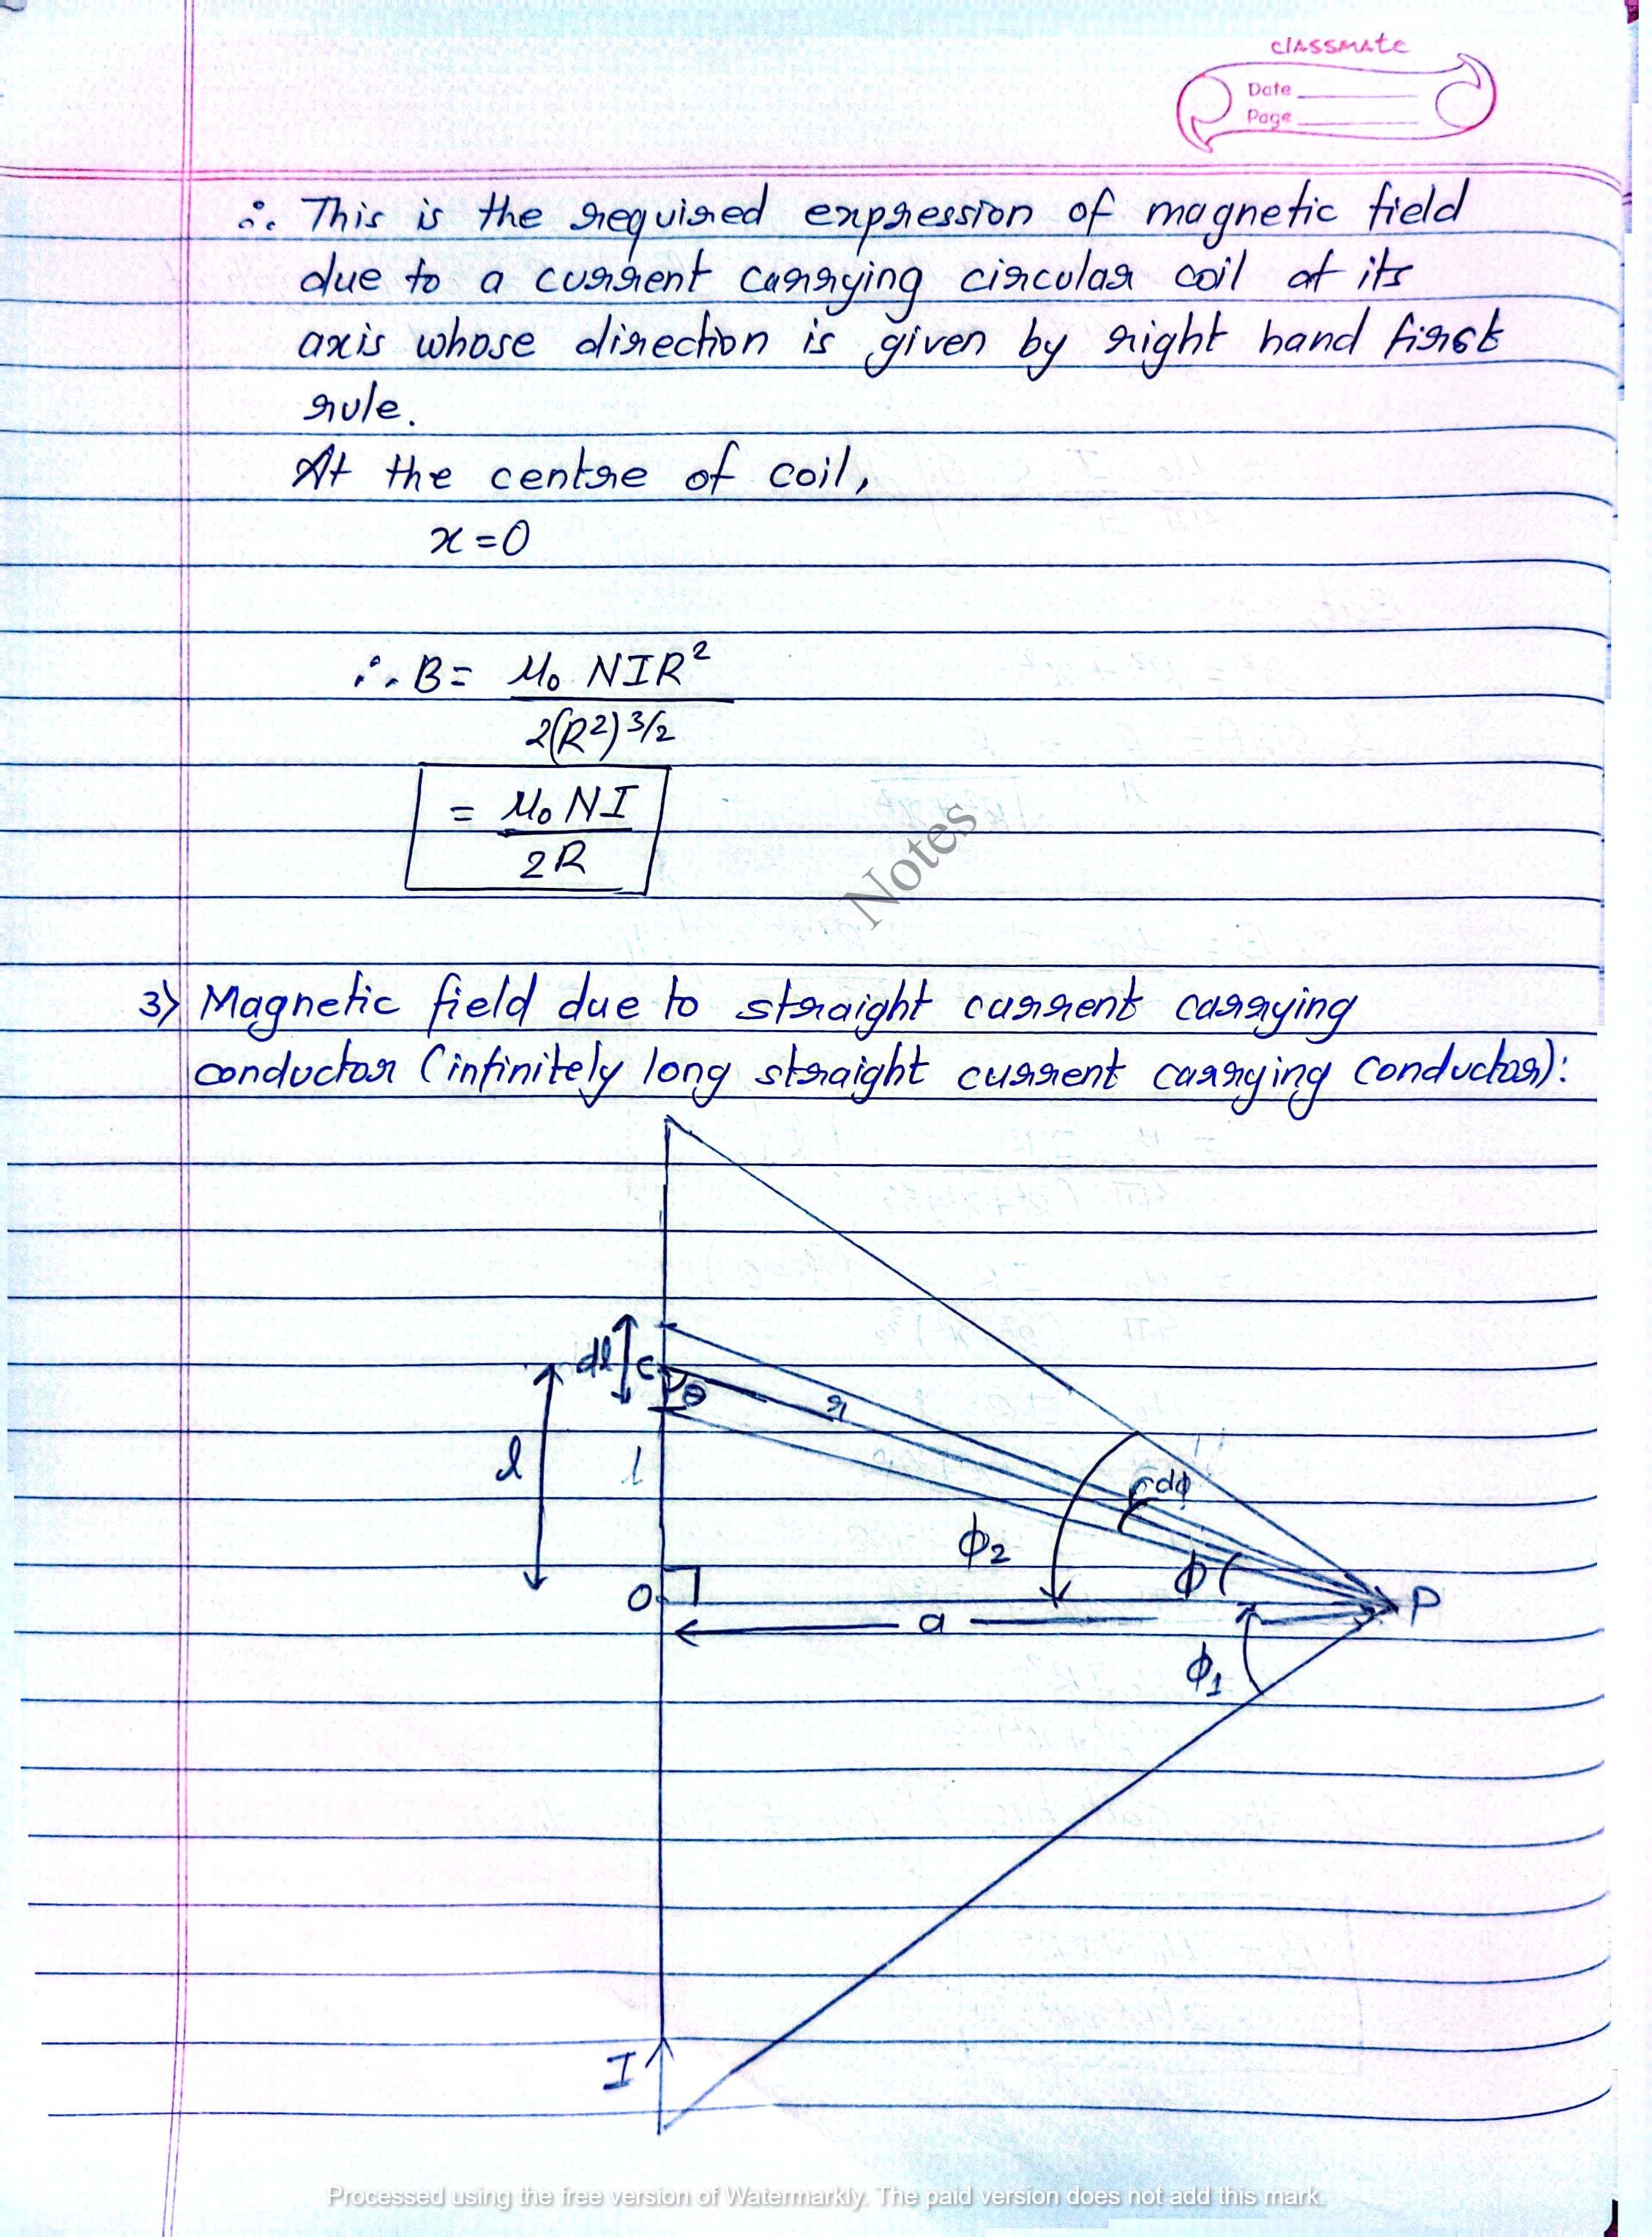 classmate
Date
Page
∴ This is the required expression of magnetic field
due to a current carrying circular coil at its
axis whose direction is given by right hand first
rule.
At the centre of coil,
x = 0
∴ B = μ₀ NIR²
2(R²)^3/2
= μ₀ NI
2R
Notes
3) Magnetic field due to straight current carrying
conductor (infinitely long straight current carrying conductor):
dl
C
θ
r
l
l
dϕ
ϕ₂
ϕ
O
a
P
ϕ₁
I
Processed using the free version of Watermarkly. The paid version does not add this mark.